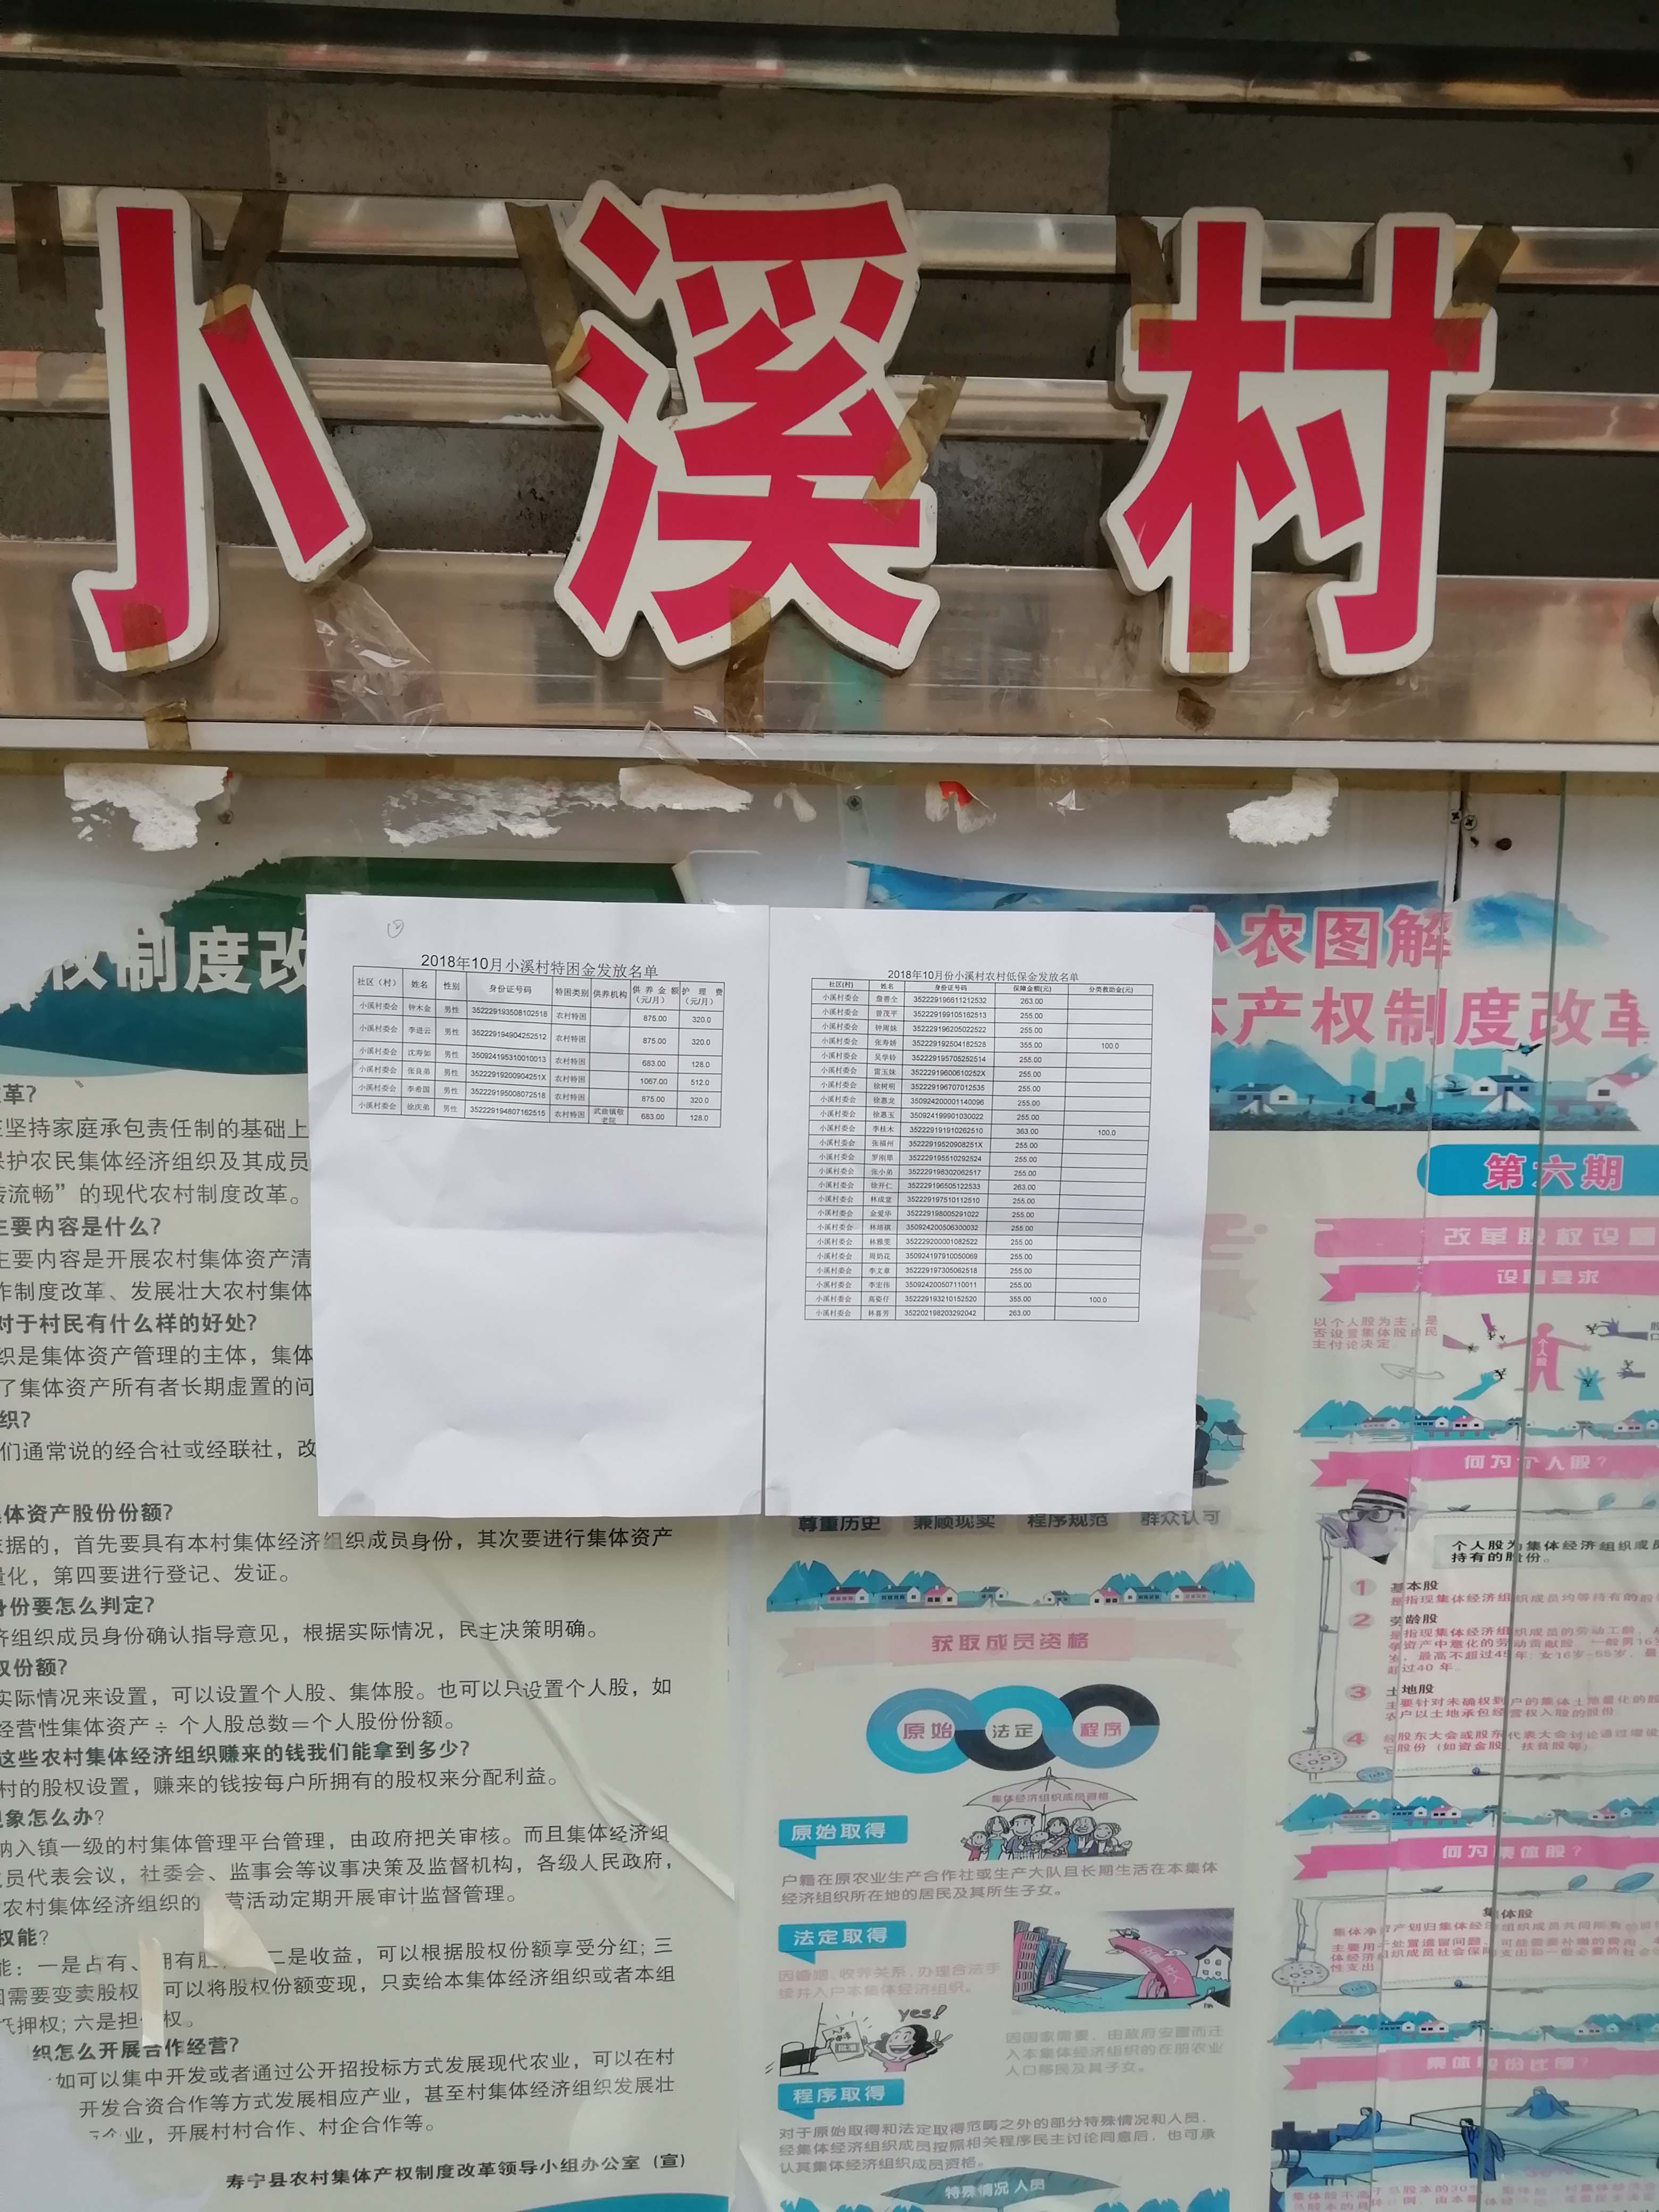 小溪村
权制度改
2018年10月小溪村特困金发放名单
社区（村） 姓名 性别 身份证号码 特困类别 供养机构 供养金额（元/月） 护理费（元/月）
小溪村委会 钟木金 男性 352229193508102518 农村特困 875.00 320.0
小溪村委会 李进云 男性 352229194904252512 农村特困 875.00 320.0
小溪村委会 沈寿如 男性 350924195310010013 农村特困 683.00 128.0
小溪村委会 张良弟 男性 35222919200904251X 农村特困 1067.00 512.0
小溪村委会 李希国 男性 352229195008072518 农村特困 875.00 320.0
小溪村委会 徐庆弟 男性 352229194807162515 农村特困 武曲镇敬老院 683.00 128.0
2018年10月份小溪村农村低保金发放名单
社区(村) 姓名 身份证号码 保障金额(元) 分类救助金(元)
小溪村委会 詹善全 352229196611212532 263.00
小溪村委会 曾茂平 352229199105162513 255.00
小溪村委会 钟周妹 352229196205022522 255.00
小溪村委会 张寿娇 352229192504182528 355.00 100.0
小溪村委会 吴学铃 352229195705252514 255.00
小溪村委会 雷玉妹 35222919600610252X 255.00
小溪村委会 徐树明 352229196707012535 255.00
小溪村委会 徐惠龙 350924200001140096 255.00
小溪村委会 徐惠玉 350924199901030022 255.00
小溪村委会 李枝木 352229191910262510 363.00 100.0
小溪村委会 张福州 35222919520908251X 255.00
小溪村委会 罗刚 352229195510292524 255.00
小溪村委会 张小弟 352229198302062517 255.00
小溪村委会 徐开仁 352229196505122533 263.00
小溪村委会 林成堂 352229197510112510 255.00
小溪村委会 金爱华 352229198005291022 255.00
小溪村委会 林培祺 350924200506300032 255.00
小溪村委会 林雅雯 352229200001082522 255.00
小溪村委会 周奶花 350924197910050069 255.00
小溪村委会 李文章 352229197305062518 255.00
小溪村委会 李宏伟 350924200507110011 255.00
小溪村委会 高姿仔 352229193210152520 355.00 100.0
小溪村委会 林喜芳 352202198203292042 263.00
革?
坚持家庭承包责任制的基础上
保护农民集体经济组织及其成员
流畅”的现代农村制度改革。
主要内容是什么?
主要内容是开展农村集体资产清
作制度改革、发展壮大农村集体
对于村民有什么样的好处?
织是集体资产管理的主体，集体
了集体资产所有者长期虚置的问
织?
们通常说的经合社或经联社，改
体资产股份份额?
据的，首先要具有本村集体经济组织成员身份，其次要进行集体资产
量化，第四要进行登记、发证。
身份要怎么判定?
济组织成员身份确认指导意见，根据实际情况，民主决策明确。
权份额?
实际情况来设置，可以设置个人股、集体股。也可以只设置个人股，如
经营性集体资产÷ 个人股总数＝个人股份份额。
这些农村集体经济组织赚来的钱我们能拿到多少?
村的股权设置，赚来的钱按每户所拥有的股权来分配利益。
象怎么办?
纳入镇一级的村集体管理平台管理，由政府把关审核。而且集体经济组
员代表会议，社委会、监事会等议事决策及监督机构，各级人民政府，
农村集体经济组织的 营活动定期开展审计监督管理。
权能?
能：一是占有、拥有股 二是收益，可以根据股权份额享受分红；三
因需要变卖股权 可以将股权份额变现，只卖给本集体经济组织或者本组
抵押权；六是担 权。
织怎么开展合作经营?
如可以集中开发或者通过公开招投标方式发展现代农业，可以在村
开发合资合作等方式发展相应产业，甚至村集体经济组织发展壮
企业，开展村村合作、村企合作等。
寿宁县农村集体产权制度改革领导小组办公室（宣）
小农图解
体产权制度改革
第六期
尊重历史 兼顾现实 程序规范 群众认可
获取成员资格
原始 法定 程序
集体经济组织成员资格
原始取得
户籍在原农业生产合作社或生产大队且长期生活在本集体
经济组织所在地的居民及其所生子女。
法定取得
因婚姻、收养关系、办理合法手
续并入户本集体经济组织。
yes!
因国家需要，由政府安置而迁
入本集体经济组织的在册农业
人口移民及其子女。
程序取得
对于原始取得和法定取得范畴之外的部分特殊情况和人员，
经集体经济组织成员按照相关程序民主讨论同意后，也可承
认其集体经济组织成员资格。
特殊情况 人员
改革股权设置
设置要求
以个人股为主，是
否设置集体股由民
主讨论决定。
个人股
何为个人股?
个人股为集体经济组织成员
持有的股份。
1 基本股
是指现集体经济组织成员均等持有的股
2 劳龄股
3 土地股
4
何为集体股?
集体股
集体股份比例?